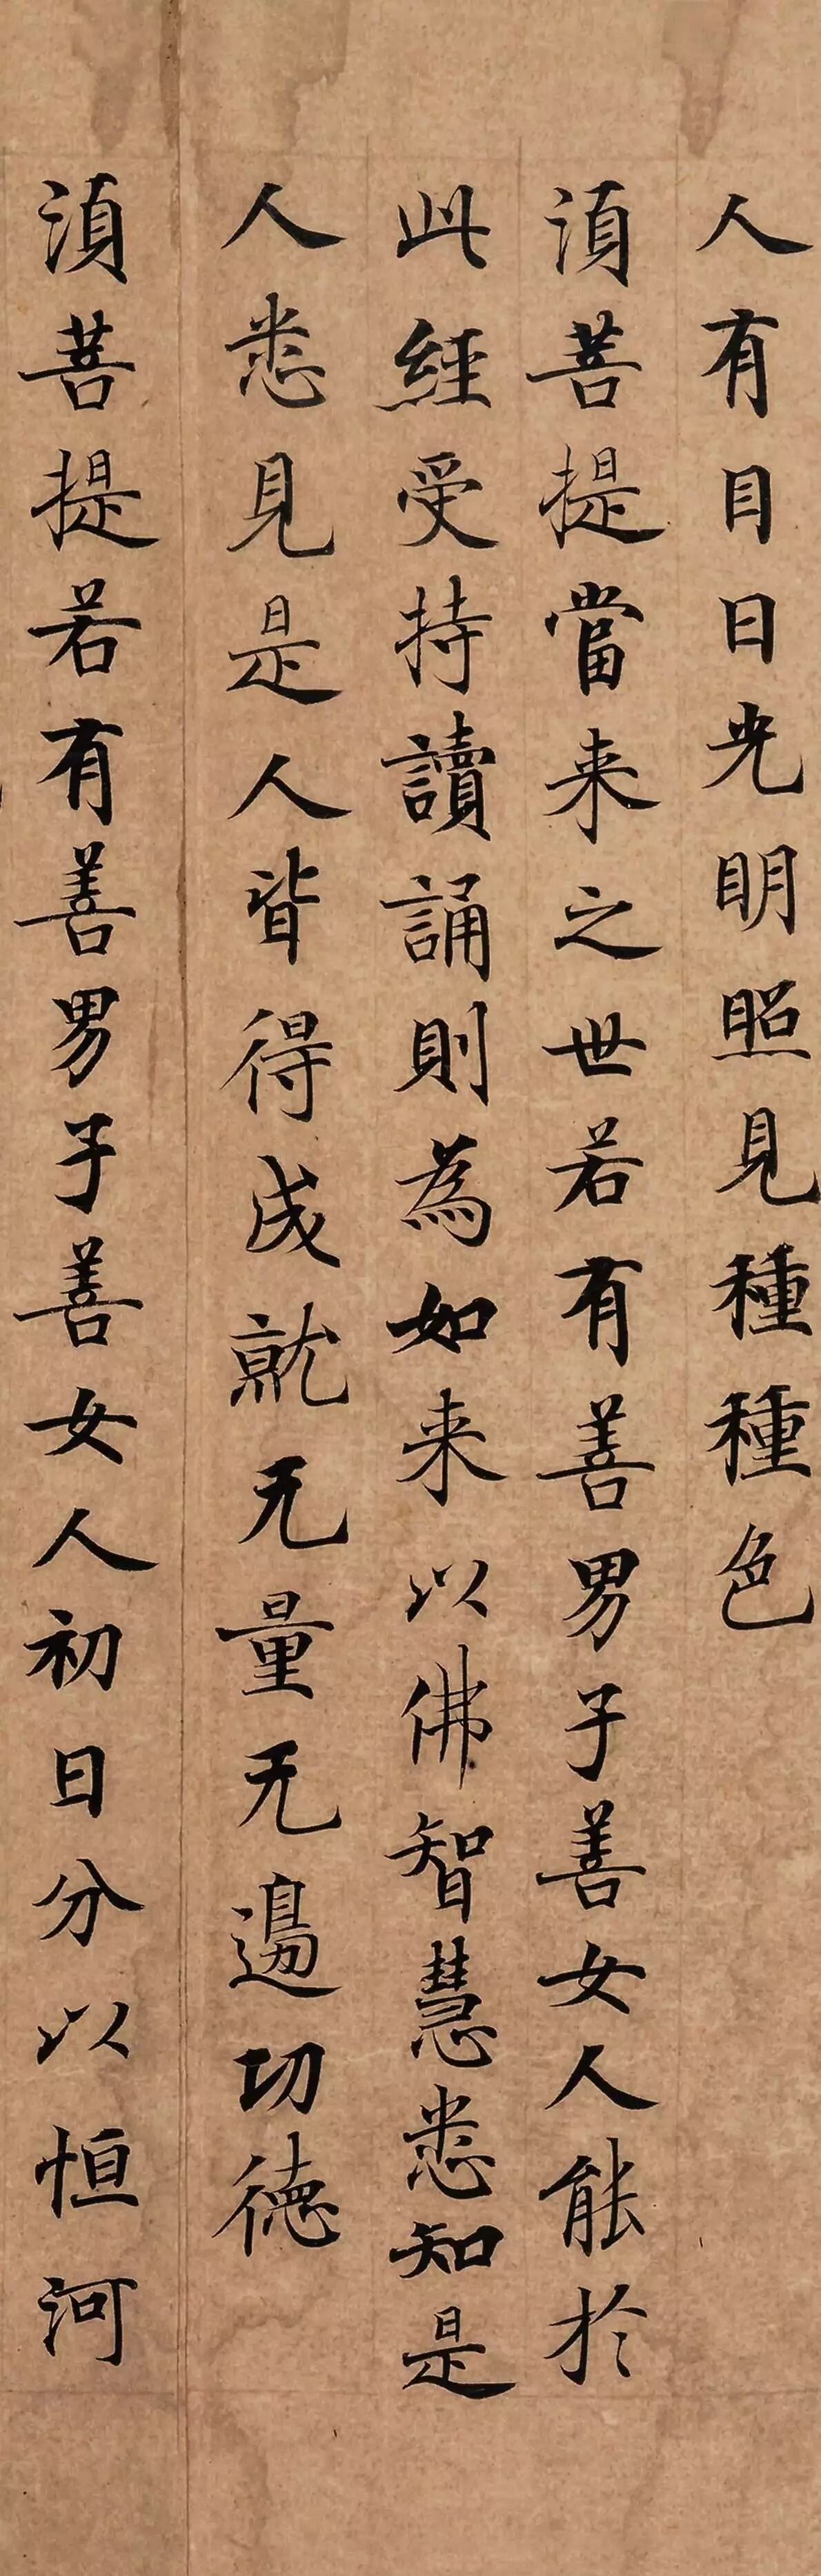 人有目日光明照見種種色
須菩提當来之世若有善男子善女人能於
此經受持讀誦則為如来以佛智慧悉知是
人悉見是人皆得成就无量无邊功德
須菩提若有善男子善女人初日分以恒河